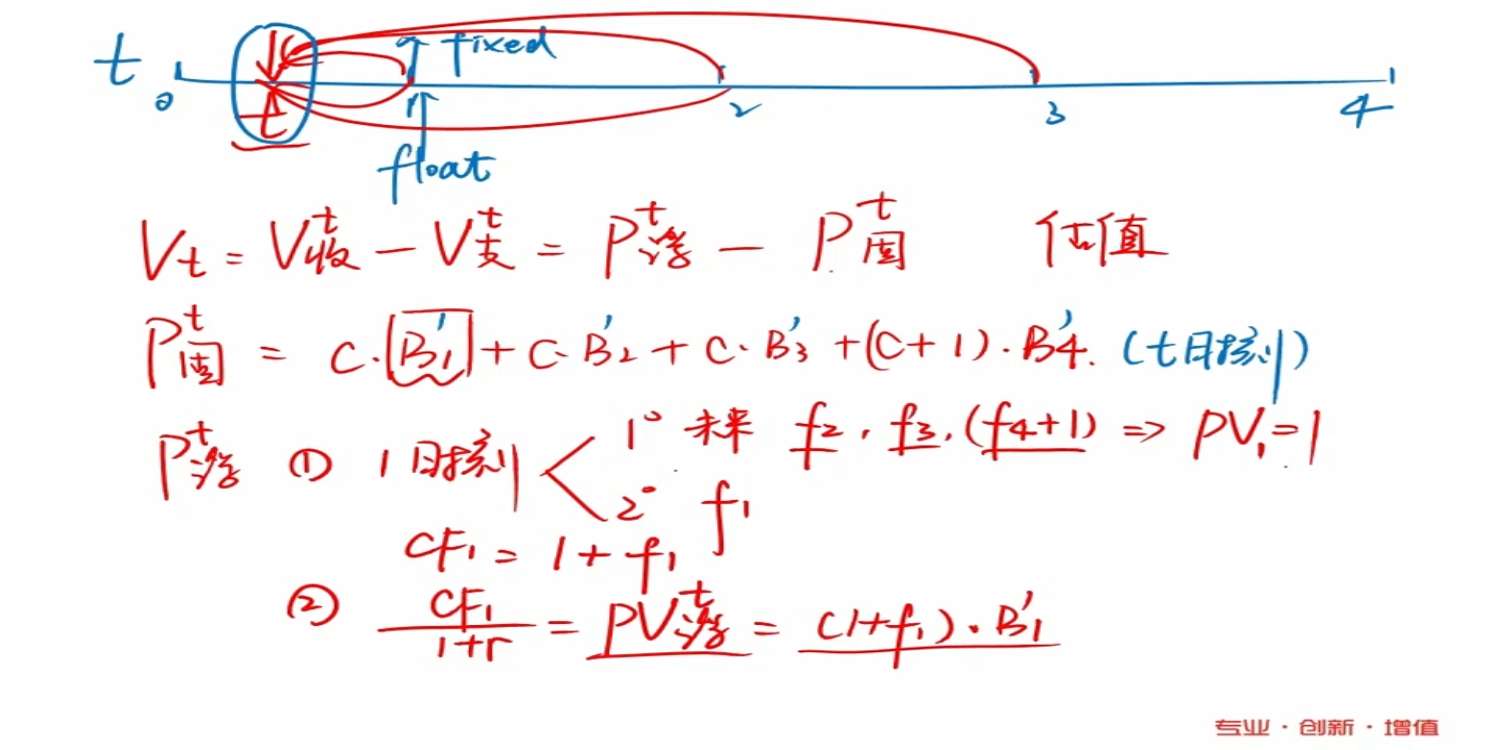 t 0 t 1 fixed 2 3 4
float
Vt = V收^t − V支^t = P浮^t − P固^t 估值
P固^t = C·B₁' + C·B'₂ + C·B'₃ + (C+1)·B'4. (t时刻)
P浮^t ① 1时刻 < 1° 未来 f2, f3, (f4+1) ⇒ PV₁=1
2° f₁
CF₁ = 1+f₁
② CF₁/1+r = PV浮^t = (1+f₁)·B'₁
专业·创新·增值